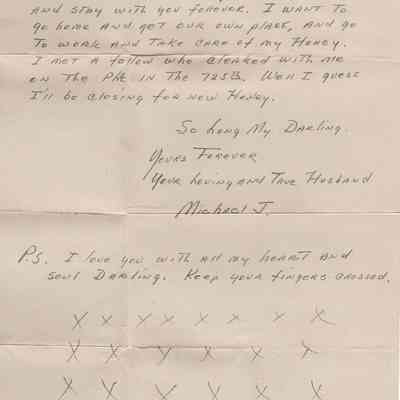 and stay with you forever. I want to
go home and get our own place, and go
to work and take care of my Honey.
I met a fellow who clerked with me
on the Phl in the 725th. Well I guess
I'll be closing for now Honey.
So Long My Darling.
Yours Forever
Your Loving and True Husband
Michael J.
P.S. I love you with all my heart and
soul Darling. Keep your fingers crossed.
X X X X X X X X
X X X X X X
X X X X X X